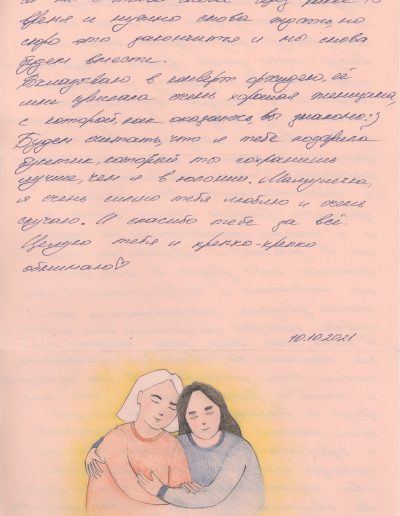 время и нужно снова ждать, но
скоро это закончится и мы снова
будем вместе.
Вкладываю в конверт орхидею, её
мне очень хорошая женщина,
с которой как оказалось вы знакомы :)
Будем считать, что я тебе подарила
букетик, который ты сохранишь
лучше, чем я в . Мамулечка,
я очень сильно тебя люблю и очень
скучаю. И спасибо тебе за всё.
Целую тебя и крепко-крепко
обнимаю♡
10.10.2021